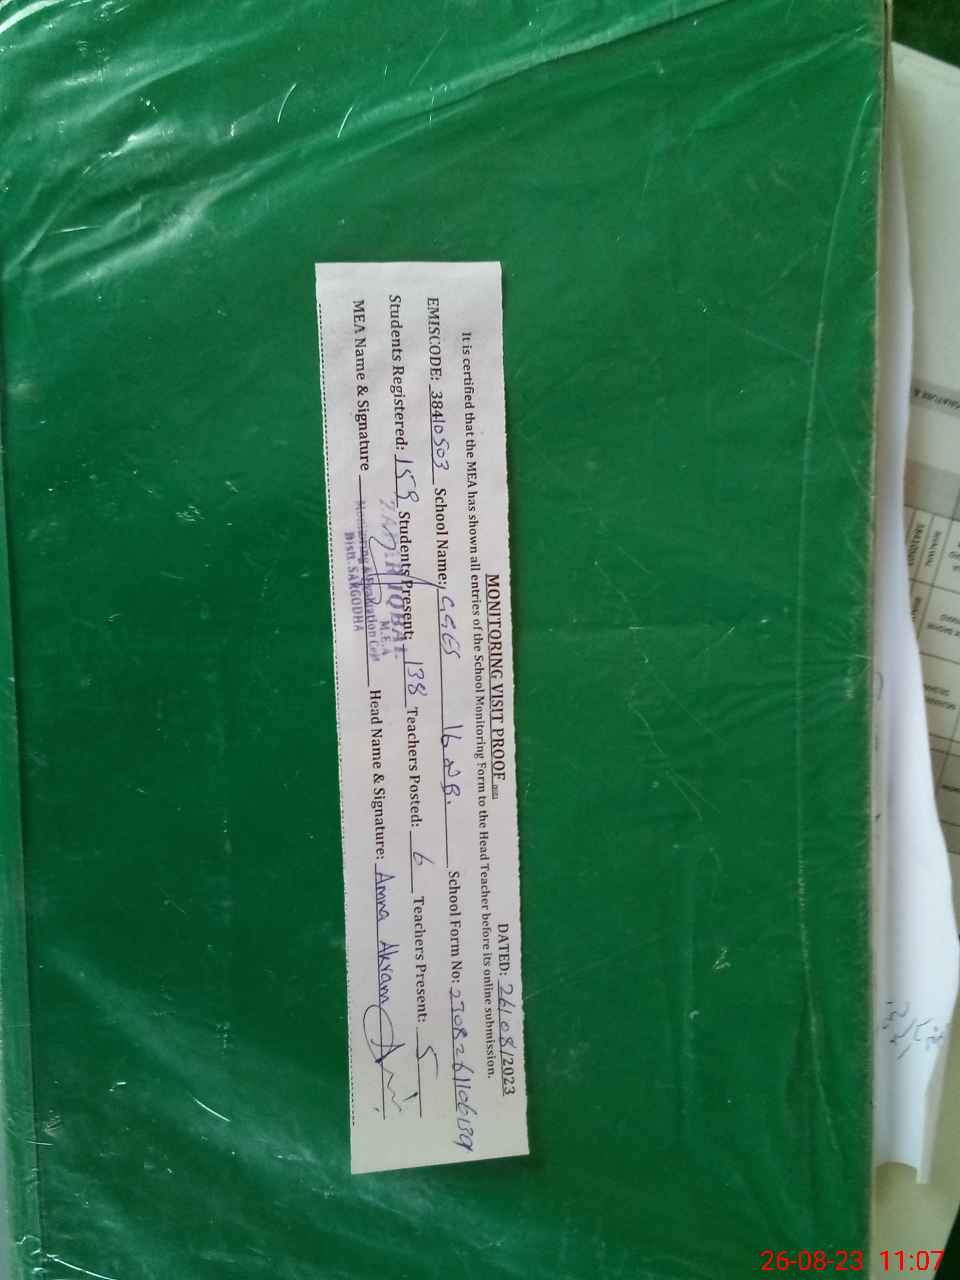 MONITORING VISIT PROOF
DATED: 26/08/2023
It is certified that the MEA has shown all entries of the School Monitoring Form to the Head Teacher before its online submission.
EMISCODE: 38410503 School Name: GGES 16 NB. School Form No: 2308261106139
Students Registered: 159 Students Present: 138 Teachers Posted: 6 Teachers Present: 5
MEA Name & Signature Head Name & Signature: Amna Akram
M.E.A
Monitoring & Evaluation Cell
Distt. SARGODHA
26-08-23 11:07